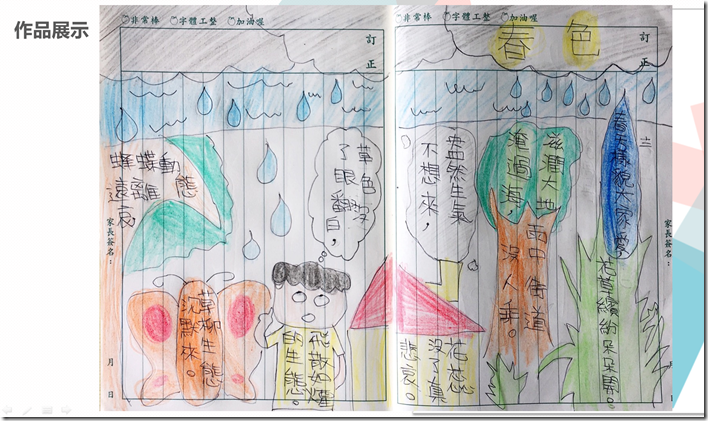 作品展示
非常棒 字體工整 加油喔
訂正
非常棒 字體工整 加油喔
訂正
春色
樣貌大家愛
花草繽紛朵朵開。
滋潤大地
淹過海,
雨中街道
沒人乖。
盎然生氣
不想來,
花蕊
沒了真
悲哀。
草色深
了眼翻
白,
飛散如
的生態。
蜂蝶動態
遠離
哀,
草柳生態
沉默來。
家長簽名:
月 日
家長簽名: